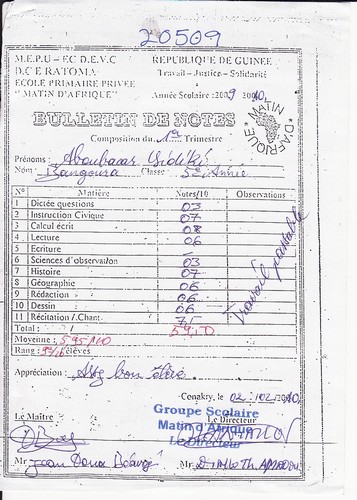 20509
M.E.P.U – EC D.E.V.C REPUBLIQUE DE GUINEE
D.C E RATOMA Travail – Justice – Solidarité
ECOLE PRIMAIRE PRIVEE
" MATIN D'AFRIQUE" Année Scolaire : 2009 2010
MATIN D'AFRIQUE
BULLETIN DE NOTES
Composition du 1er Trimestre
Prénoms : Aboubacar Sidiki
Nom : Bangoura Classe : 5ème Année
N° Matière Notes/10 Observations
1 Dictée questions 03
2 Instruction Civique 07
3 Calcul écrit 08
4 Lecture 06
5 Ecriture –
6 Sciences d'observation 03
7 Histoire 07
8 Géographie 06
9 Rédaction 06
10 Dessin 06
11 Récitation /.Chant
Travail passable
Total :
Moyenne : 5,95/10
Rang : élèves
Appréciation : Assez bon élève
Conakry, le 02/02/2010
Le Maître Le Directeur
Groupe Scolaire
Matin d'Afrique
Le Directeur
Mr Jean Mr Diallo Th. Amadou